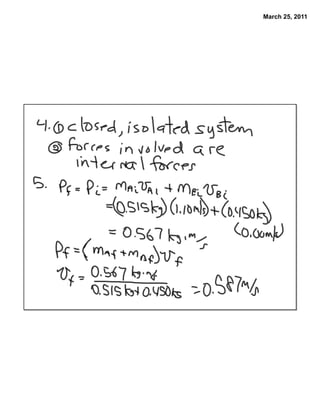 March 25, 2011
4. ① closed, isolated system
② forces involved are
internal forces
5. Pf = Pi = mAi vAi + mBi vBi
= (0.515 kg)(1.10 m/s) + (0.450 kg)
= 0.567 kg·m/s (0.00 m/s)
Pf = (mAf + mBf) vf
vf = 0.567 kg·m/s / 0.515 kg + 0.450 kg = 0.587 m/s